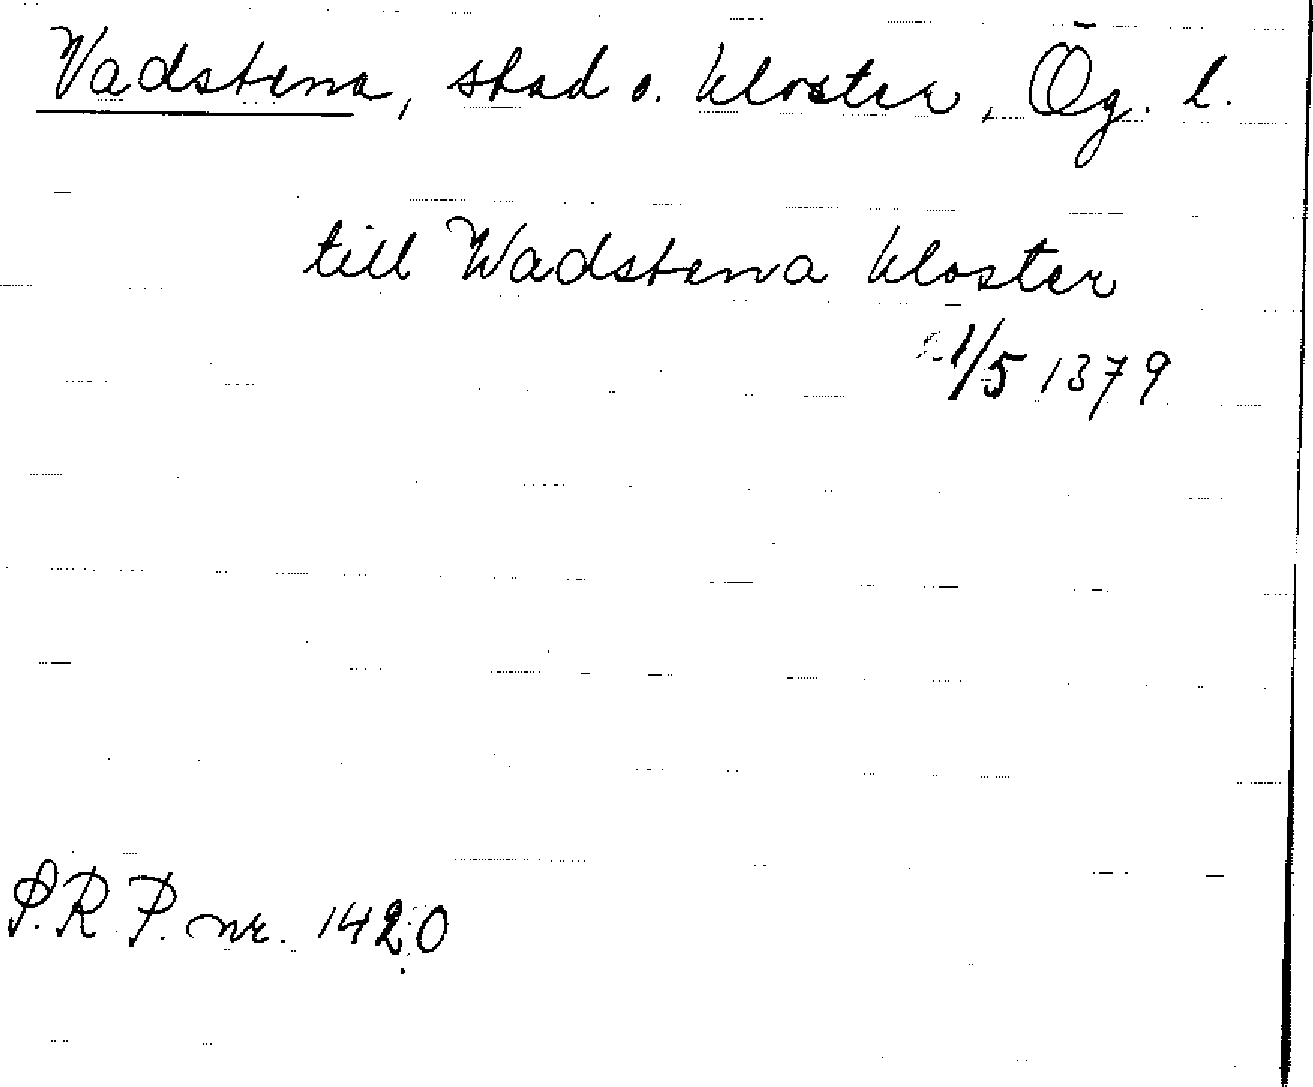 Vadstena, stad o. kloster, Ög. l.
till Wadstena kloster
1/5 1379
S.R.P. nr. 1420